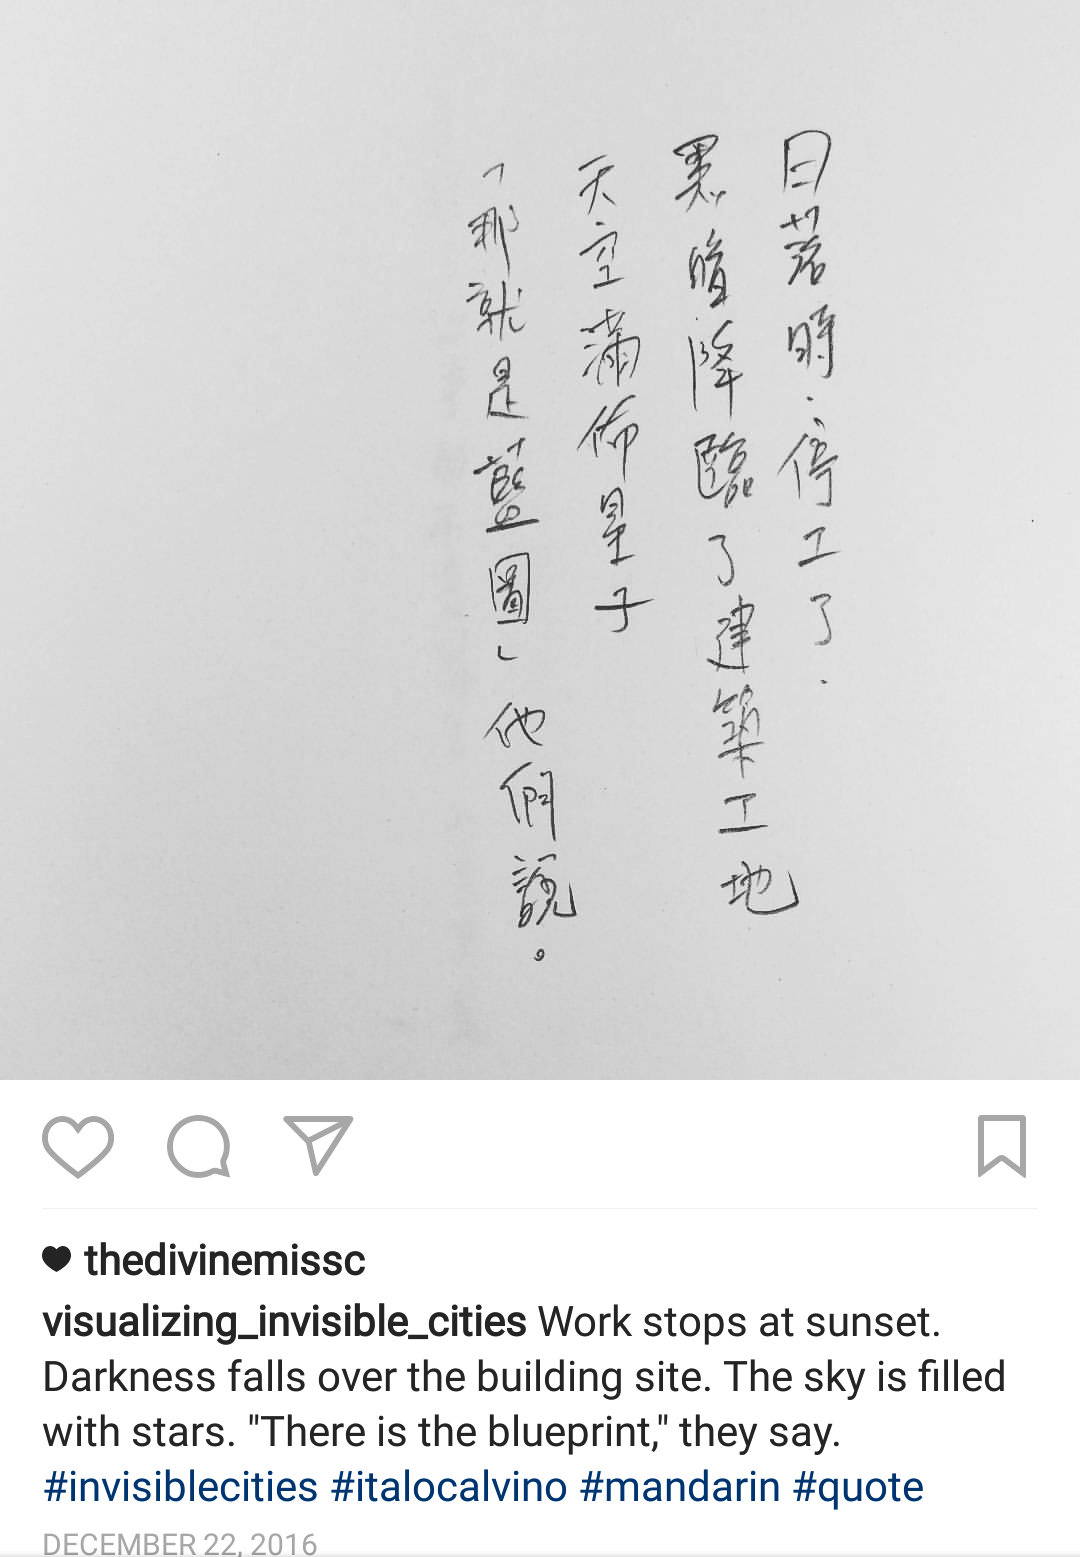 日落時，停工了．
黑暗降臨了建築工地
天空滿佈星子
「那就是藍圖」他們說。
thedivinemissc
visualizing_invisible_cities Work stops at sunset.
Darkness falls over the building site. The sky is filled
with stars. "There is the blueprint," they say.
#invisiblecities #italocalvino #mandarin #quote
DECEMBER 22, 2016